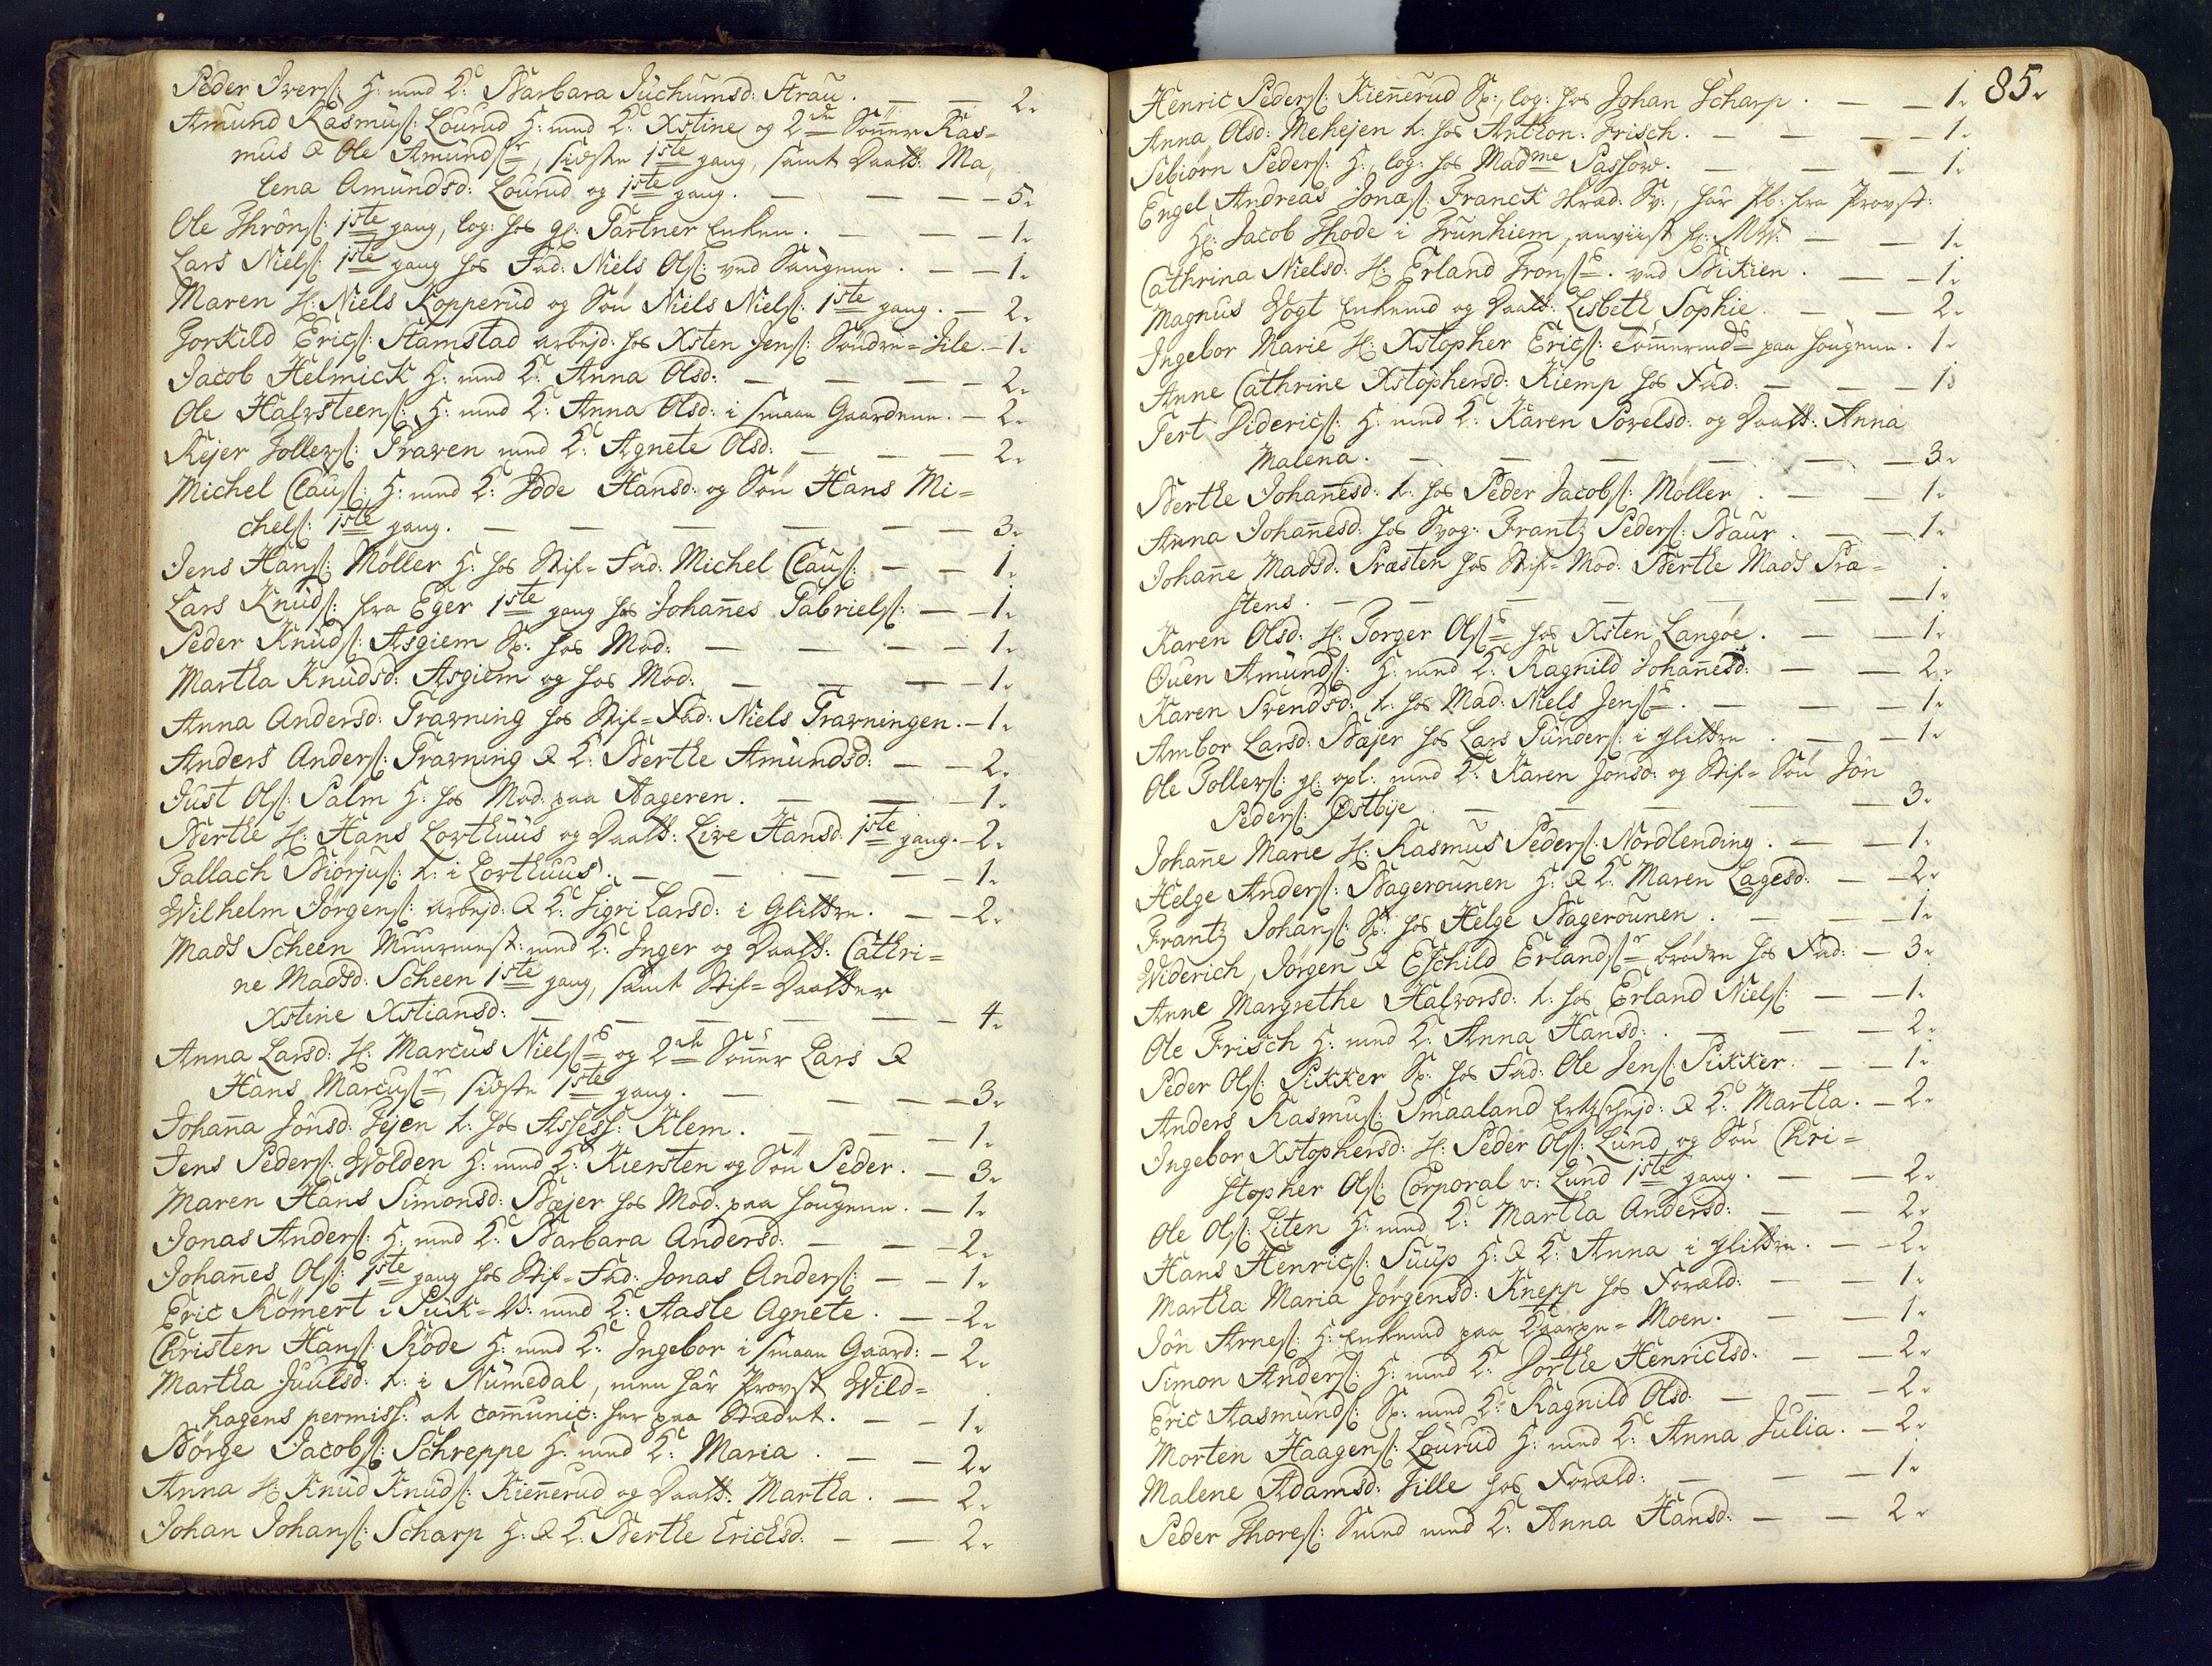 Peder Ivers: H: med K: Barbara Juchumsd: Strau. — — 2.
Amund Rasmus: Lourud H: med K: Xstine og 2de Sønner Ras=
mus & Ole Amunds:r, sidste 1ste gang, samt Daatt: Ma,
lena Amundsd: Lourud og 1ste gang. — — — 5.
Ole Throns: 1ste gang, log: hos gl: Partner Enken. — — 1.
Lars Niels: 1ste gang hos Fad: Niels Ols: ved Saugene. — — 1.
Maren H: Niels Kopperud og Søn Niels Niels: 1ste gang. — 2.
Torkild Erics: Stamstad arbejd: hos Xsten Jens: Søndre=File. — 1.
Jacob Helmick H: med K: Anna Olsd: — — — 2.
Ole Halvsteens: H: med K: Anna Olsd: i smaae Gaardene. — 2.
Rejer Tollevs: Graven med K: Agnete Olsd: — — — 2.
Michel Claus: H: med K: Idde Hansd: og Søn Hans Mi=
chels: 1ste gang. — — — — — 3.
Jens Hans: Møller H: hos Stif=Fad: Michel Claus: — — 1.
Lars Knuds: fra Eger 1ste gang hos Johannes Gabriels: — — 1.
Peder Knuds: Asgiem Sp: hos Mod: — — — — 1.
Martha Knudsd: Asgiem og hos Mod: — — — 1.
Anna Andersd: Gravning hos Stif=Fad: Niels Gravningen. — 1.
Anders Anders: Gravning & K: Berthe Amundsd: — — 2.
Just Ols: Palm H: hos Mod: paa Aageren. — — — 1.
Berthe H: Hans Lorthuus og Daatt: Live Hansd: 1ste gang. — 2.
Gallach Biørjus: t: i Lorthuus. — — — — — 1.
Wilhelm Jørgens: arbejd: & K: Sigri Larsd: i Glittre. — — 2.
Mads Scheen Muurmest: med K: Inger og Daatt: Cathri=
ne Madsd: Scheen 1ste gang, samt Stif=Daatter
Xstine Xstiansd: — — — — — — 4.
Anna Larsd: H: Marcus Niels: og 2de Sønner Lars &
Hans Marcus:r, sidste 1ste gang. — — — 3.
Johanna Jonsd: Fejen t: hos Assess: Klem. — — — 1.
Jens Peders: Wolden H: med K: Kiersten og Søn Peder. — 3.
Maren Hans Simonsd: Bøjer hos Mod: paa Hougene. — 1.
Jonas Anders: H: med K: Barbara Andersd: — — — 2.
Johannes Ols: 1ste gang hos Stif=Fad: Jonas Anders: — — 1.
Eric Rømert i Puk=V: med K: Aasle Agnete. — — 2.
Christen Hans: Røde H: med K: Ingebor i smaae Gaard: — 2.
Martha Juulsd: t: i Numedal, men har Provst Wild=
hagens permiss: at communic: her paa Stædet. — — 1.
Børge Jacobs: Schreppe H: med K: Maria. — — 2.
Anna H: Knud Knuds: Kiennerud og Daatt: Martha. — 2.
Johan Johans: Scharp H: & K: Berthe Ericksd: — — 2.
85.
Henric Peders: Kiennerud Sp:, log: hos Johan Scharp. — — 1.
Anna Olsd: Mehejen t: hos Anthon: Frisch. — — — 1.
Sebiørn Peders: H:, log: hos Madme Passow. — — — 1.
Engel Andreas Jonæs: Franck Skræd: Sv:, har Pb: fra Provst:
Hr: Jacob Thode i Trunhiem, anviist hr: — — 1.
Cathrina Nielsd: H: Erland Trons: ved Bikien. — — 1.
Magnus Vogt Enkemd og Daatt: Lisbeth Sophie. — — 2.
Ingebor Marie H: Xstopher Erics: Tømmermds paa Hougene. 1.
Anne Cathrine Xstophersd: Kiemp hos Fad: — — — 1.
Gert Didrics: H: med K: Karen Povelsd: og Daatt: Anna
Malena. — — — — — — 3.
Berthe Johannesd: t: hos Peder Jacobs: Møller. — — 1.
Anna Johannesd: hos Svog: Frantz Peders: Baur. — — 1.
Johanne Madsd: Præsten hos Stif=Mod: Berthe Mads Præ=
stens. — — — — — 1.
Karen Olsd: H: Torger Ols: hos Xsten Langøe. — — 1.
Ouen Amunds: H: med K: Ragnild Johannesd: — — 2.
Karen Svendsd: t: hos Mad: Niels Jens: — — — 1.
Ambor Larsd: Bøjer hos Lars Gunders: i Glittre. — — 1.
Ole Tollevs: gl: opl: med K: Karen Jonsd: og Stif=Søn Jon
Peders: Østbye. — — — — — 3.
Johanne Marie H: Rasmus Peders: Nordlending. — — 1.
Helge Anders: Bagerounen H: & K: Maren Lagesd: — — 2.
Frantz Johans: Sp: hos Helge Bagerounen. — — 1.
Widerich, Jørgen & Eschild Erlands:r brødre hos Fad: — 3.
Anne Margrethe Halvorsd: t: hos Erland Niels: — — 1.
Ole Frisch H: med K: Anna Hansd: — — — 2.
Peder Ols: Pikker Sp: hos Fad: Ole Jens: Pikker. — — 1.
Anders Rasmus: Smaaland Ertzschejd: & K: Martha. — 2.
Ingebor Xstophersd: H: Peder Ols: Lund og Søn Chri=
stopher Ols: Corporal v: Lund 1ste gang. — — 2.
Ole Ols: Liten H: med K: Martha Andersd: — — 2.
Hans Henrics: Suup H: & K: Anna i Glittre. — — 2.
Martha Maria Jørgensd: Knepp hos Foræld: — — 1.
Jon Arnes: H: Enkemd paa Skarpe=Moen. — — 1.
Simon Anders: H: med K: Dorthe Henricksd: — — 2.
Eric Aasmunds: Sp: med K: Ragnild Olsd: — — — 2.
Morten Haagens: Lourud H: med K: Anna Julia. — 2.
Malene Adamsd: Fille hos Foræld: — — — 1.
Peder Thores: Smed med K: Anna Hansd: — — 2.